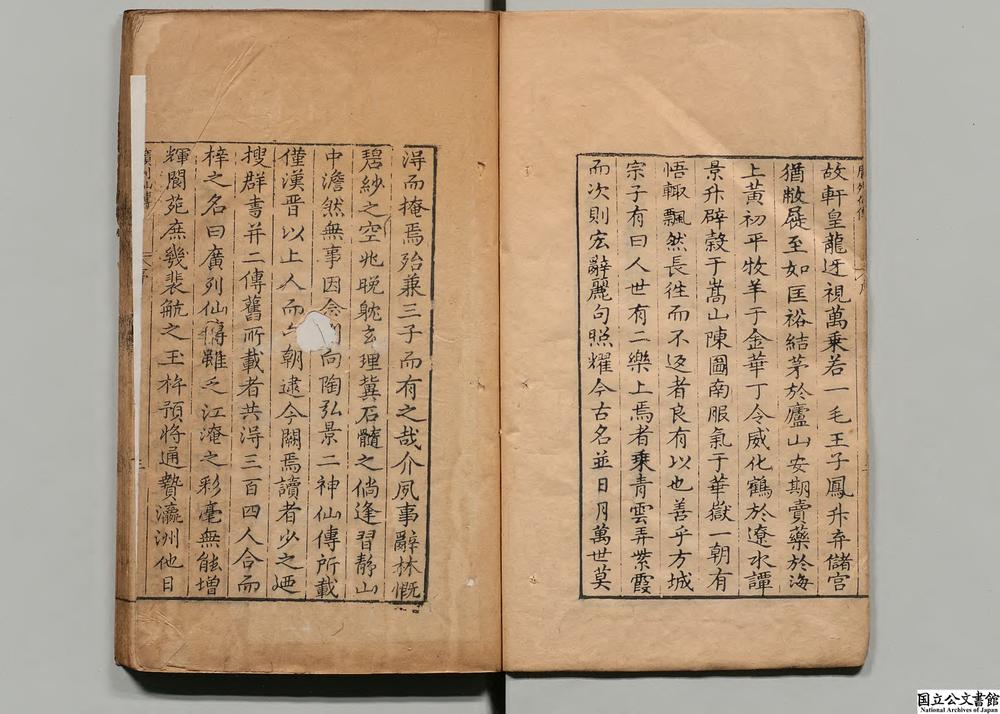 故軒皇龍迓視萬乘若一毛王子鳳升弃儲宮
猶敝屣至如匡裕結茅於廬山安期賣藥於海
上黃初平牧羊于金華丁令威化鶴於遼水譚
景升辟穀于嵩山陳圖南服氣于華嶽一朝有
悟輙飄然長徃而不返者良有以也善乎方城
宗子有曰人世有二樂上焉者乘青雲弄紫霞
而次則宏辭麗句照耀今古名並日月萬世莫
淂而掩焉殆兼三子而有之哉介夙事辭林慨
碧紗之空兆晚躭玄理冀石髓之倘逢習靜山
中澹然無事因念劉向陶弘景二神仙傳所載
僅漢晋以上人而六朝逮今闕焉讀者少之廼
搜群書并二傳舊所載者共淂三百四人合而
梓之名曰廣列仙傳雖乏江淹之彩毫無能增
輝閬苑庶幾裴航之玉杵預將通贄瀛洲他日
廣列仙傳
国立公文書館
National Archives of Japan